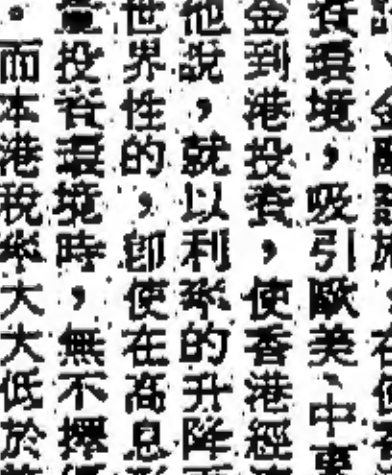 資環境，吸引歐美、中東
金到港投資，使香港經
他說，就以利率的升降
世界性的，即使在高息
投資環境時，無不擇
。而本港稅率大大低於